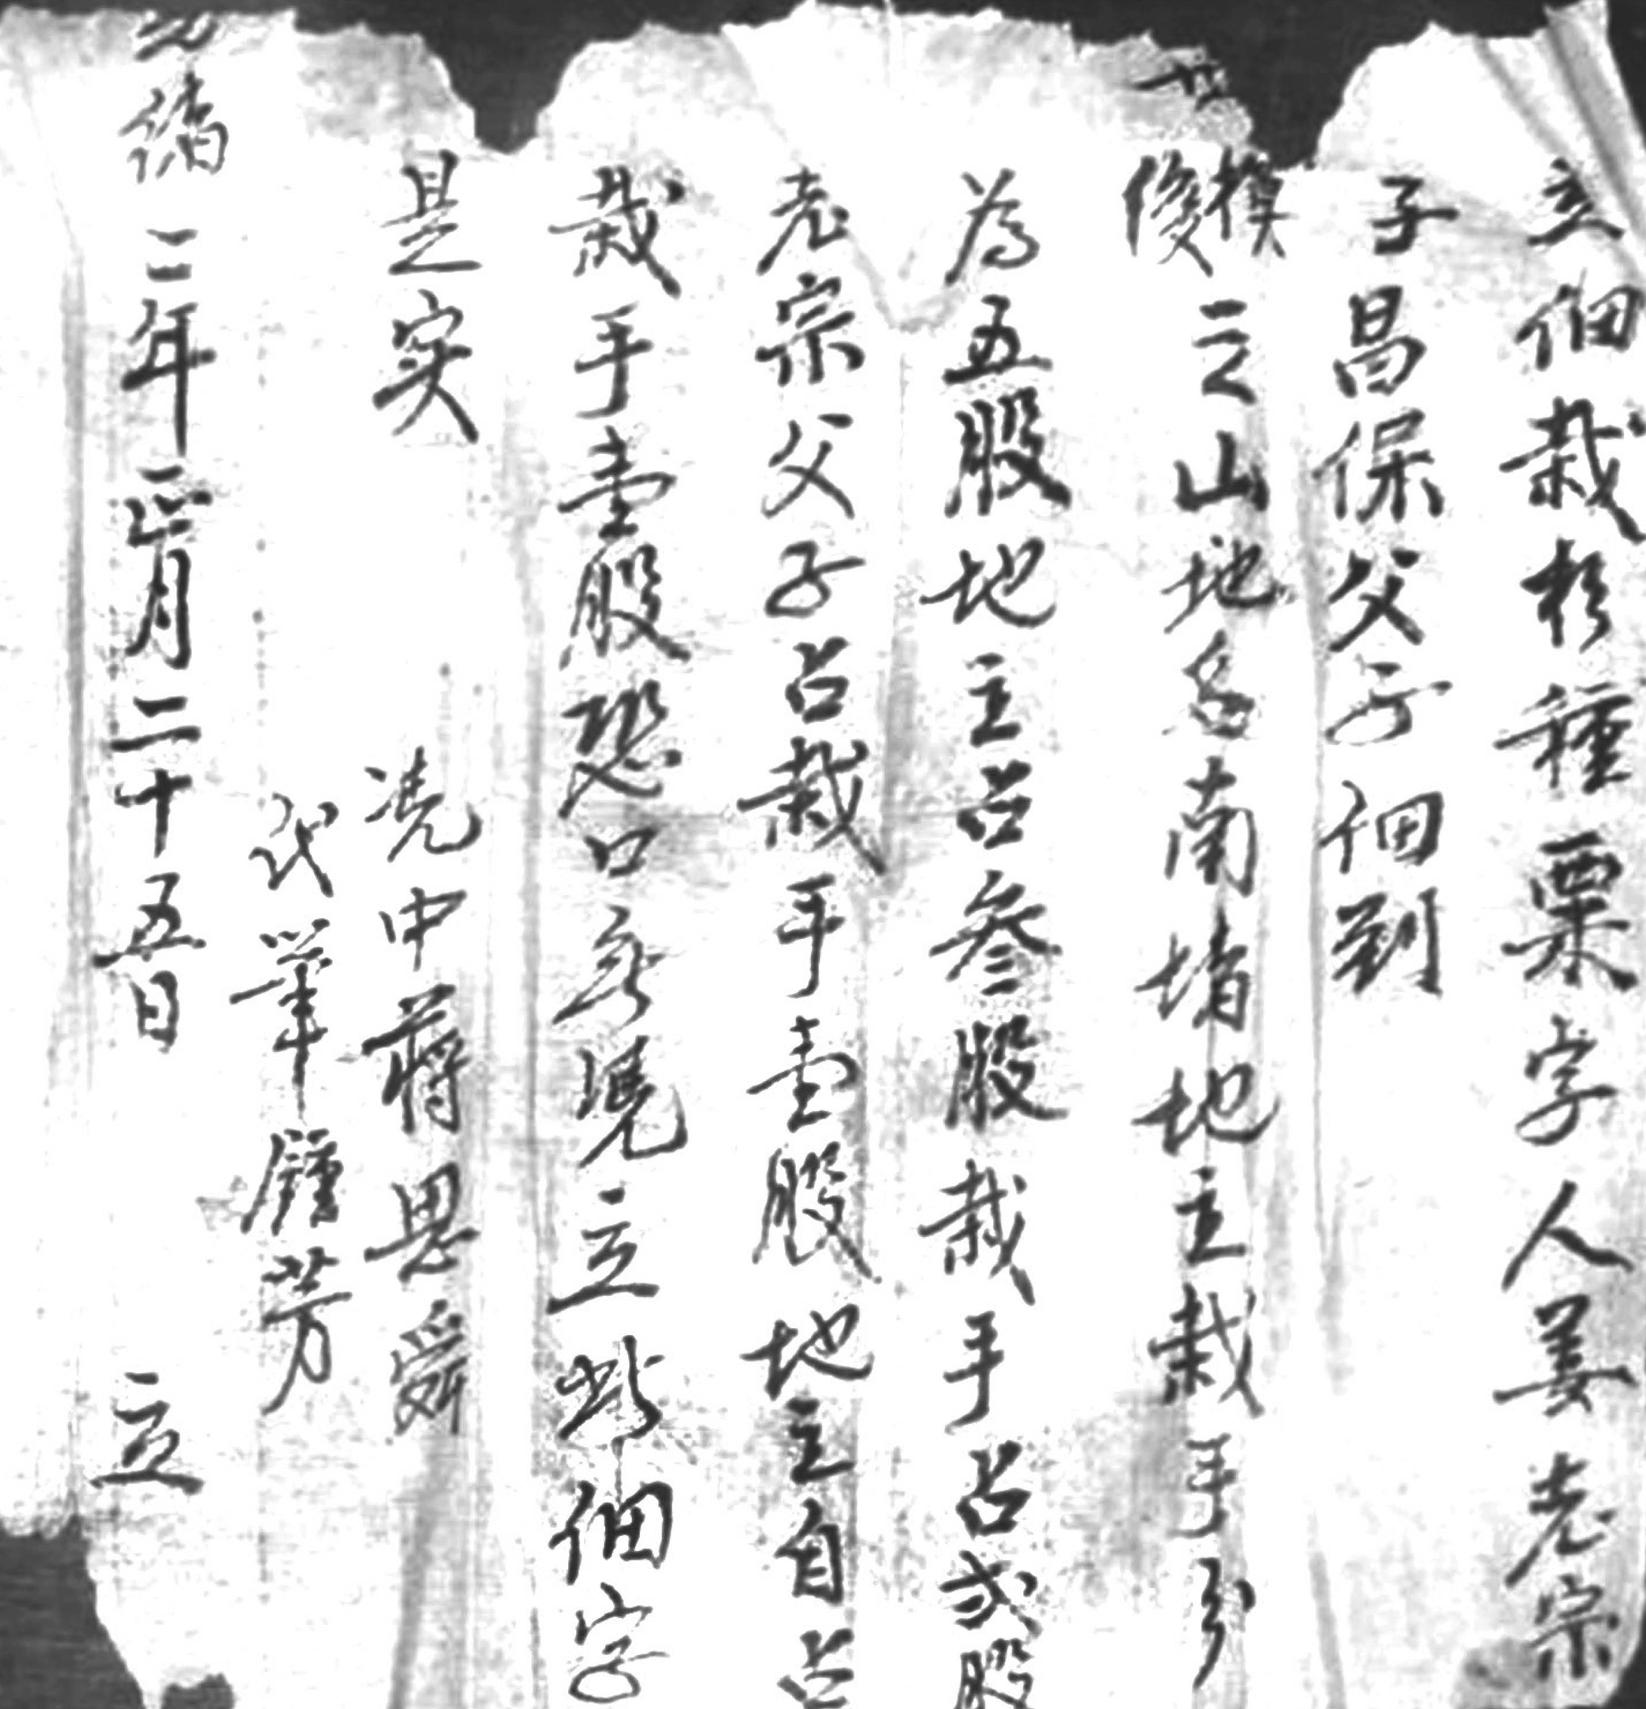 立佃栽杉種粟字人姜老宗
子昌保父子佃到
模俊之山地名南堵地主栽手分
為五股地主占叁股栽手占弍股
老宗父子占栽手壹股地主自占
栽手壹股恐口無憑立此佃字
是实
凭中蔣恩舜
代筆鍾芳
二年正月二十五日 立